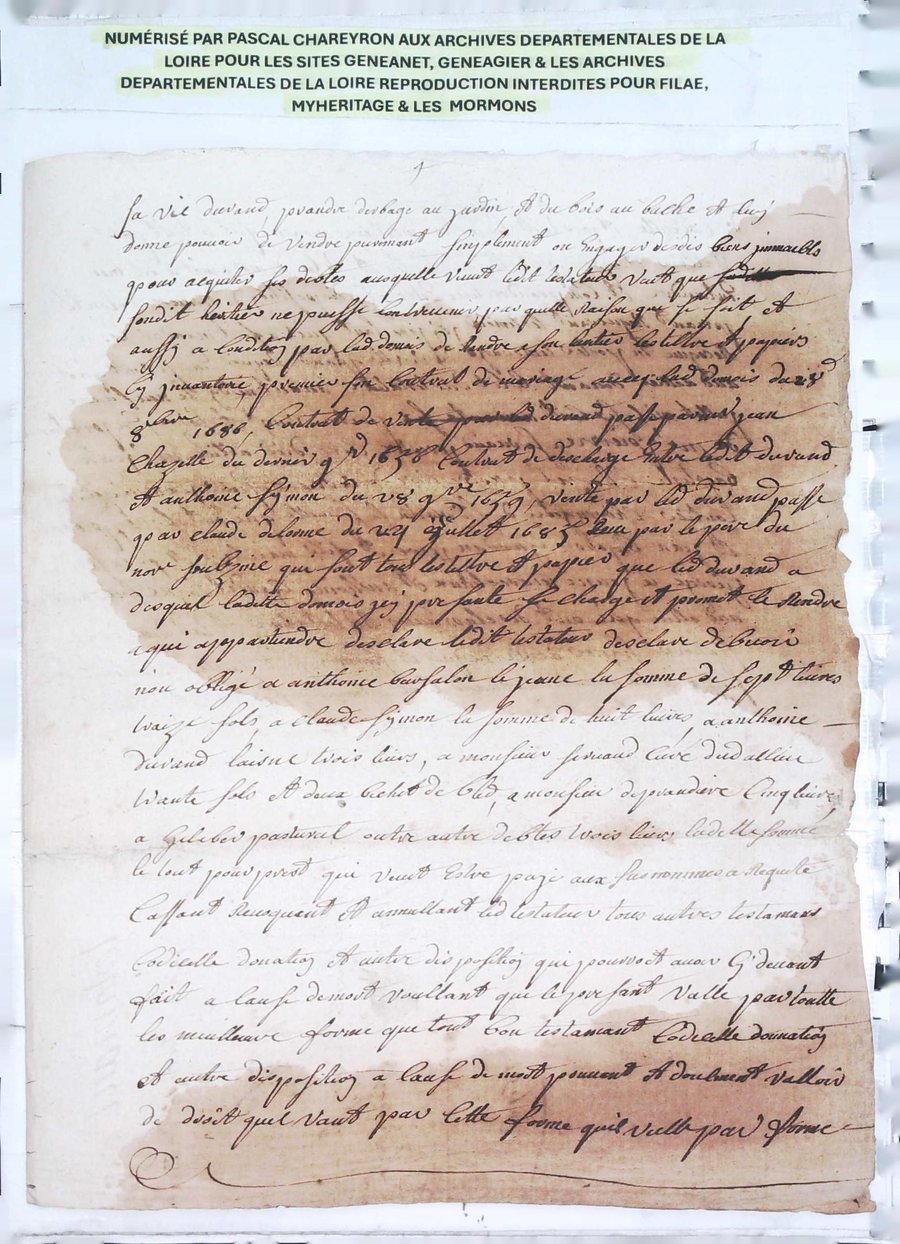 NUMÉRISÉ PAR PASCAL CHAREYRON AUX ARCHIVES DEPARTEMENTALES DE LA
LOIRE POUR LES SITES GENEANET, GENEAGIER & LES ARCHIVES
DEPARTEMENTALES DE LA LOIRE REPRODUCTION INTERDITES POUR FILAE,
MYHERITAGE & LES MORMONS
sa vie durand, prandre derbage au jardin et du bois au buche et luy
donne pouvoir de vendre puremant simplement ou Engager desdis biens jmmeubls
pour aquiter ses debtes ausquelle led testateur veut que
sondit heritier ne puisse contrevenir par quelle Raison que se soit et
aussy a Condition par lad. de Rendre a son heritier les tiltre et papiers
Cy jnvantoire premier son Contrat de mariage avecq lad du 28d
8bre 1686, Contrat de vente par led durand passe par jean
Chazelle du dernier 1658 Contrat de descharge Entre ledit durand
et anthoine Symon du 28 9bre 1659, vente par led durand passe
par claude delorme du 24 juillet 1685 par le pere du
nore soubzne qui sont tous les tiltre et papier que led durand a
desquel laditte jcy presante se charge et promet le Rendre
a qui appartiendra desclare ledit testateur desclare debvoir
non obligé a anthoine barsalon le jeune la somme de sept livres
traize sols, a claude symon la somme de huit livres, a anthoine
durand laisne trois livres, a monsieur Curé
trante sols et deux bichet de bled, a monsieur deprandiere Cinq livres
a pastural outre autre debtes trois livres ladette somme
le tout pour prest qui veut Estre paje aux susnommes a Requeste
Cassant Revoquant et annullant led testateur tous autres testamans
Codicille donation et autre disposition qui pourroit avoir Cy devant
fait a Cause de mort voullant que le presant valle par toutte
les meilleure forme que tout bon testamant Codicille donnation
et autre disposition a Cause de mort peuvent et doibvent valloir
de droit quel vaut par Cette forme quil valle par forme